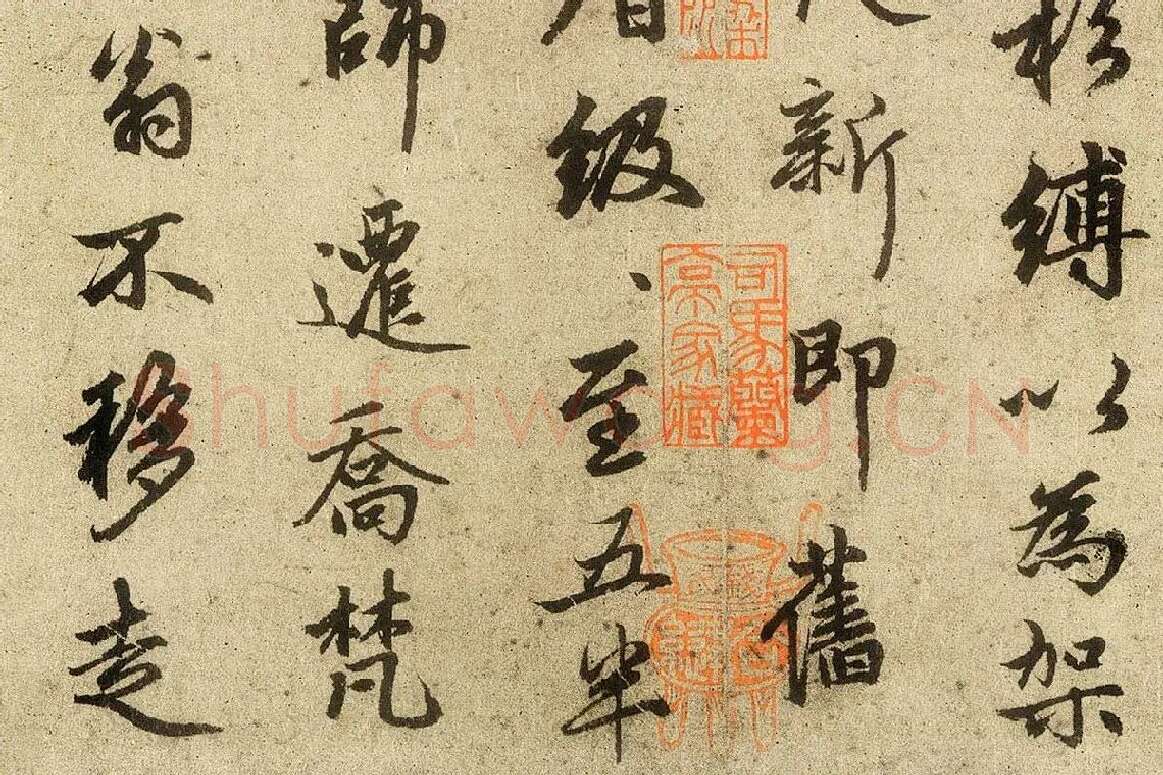 杉縛以為架
新即舊
級、至五半
師遷喬梵
翁不移走
司馬蘭亭家藏
shufawang.CN